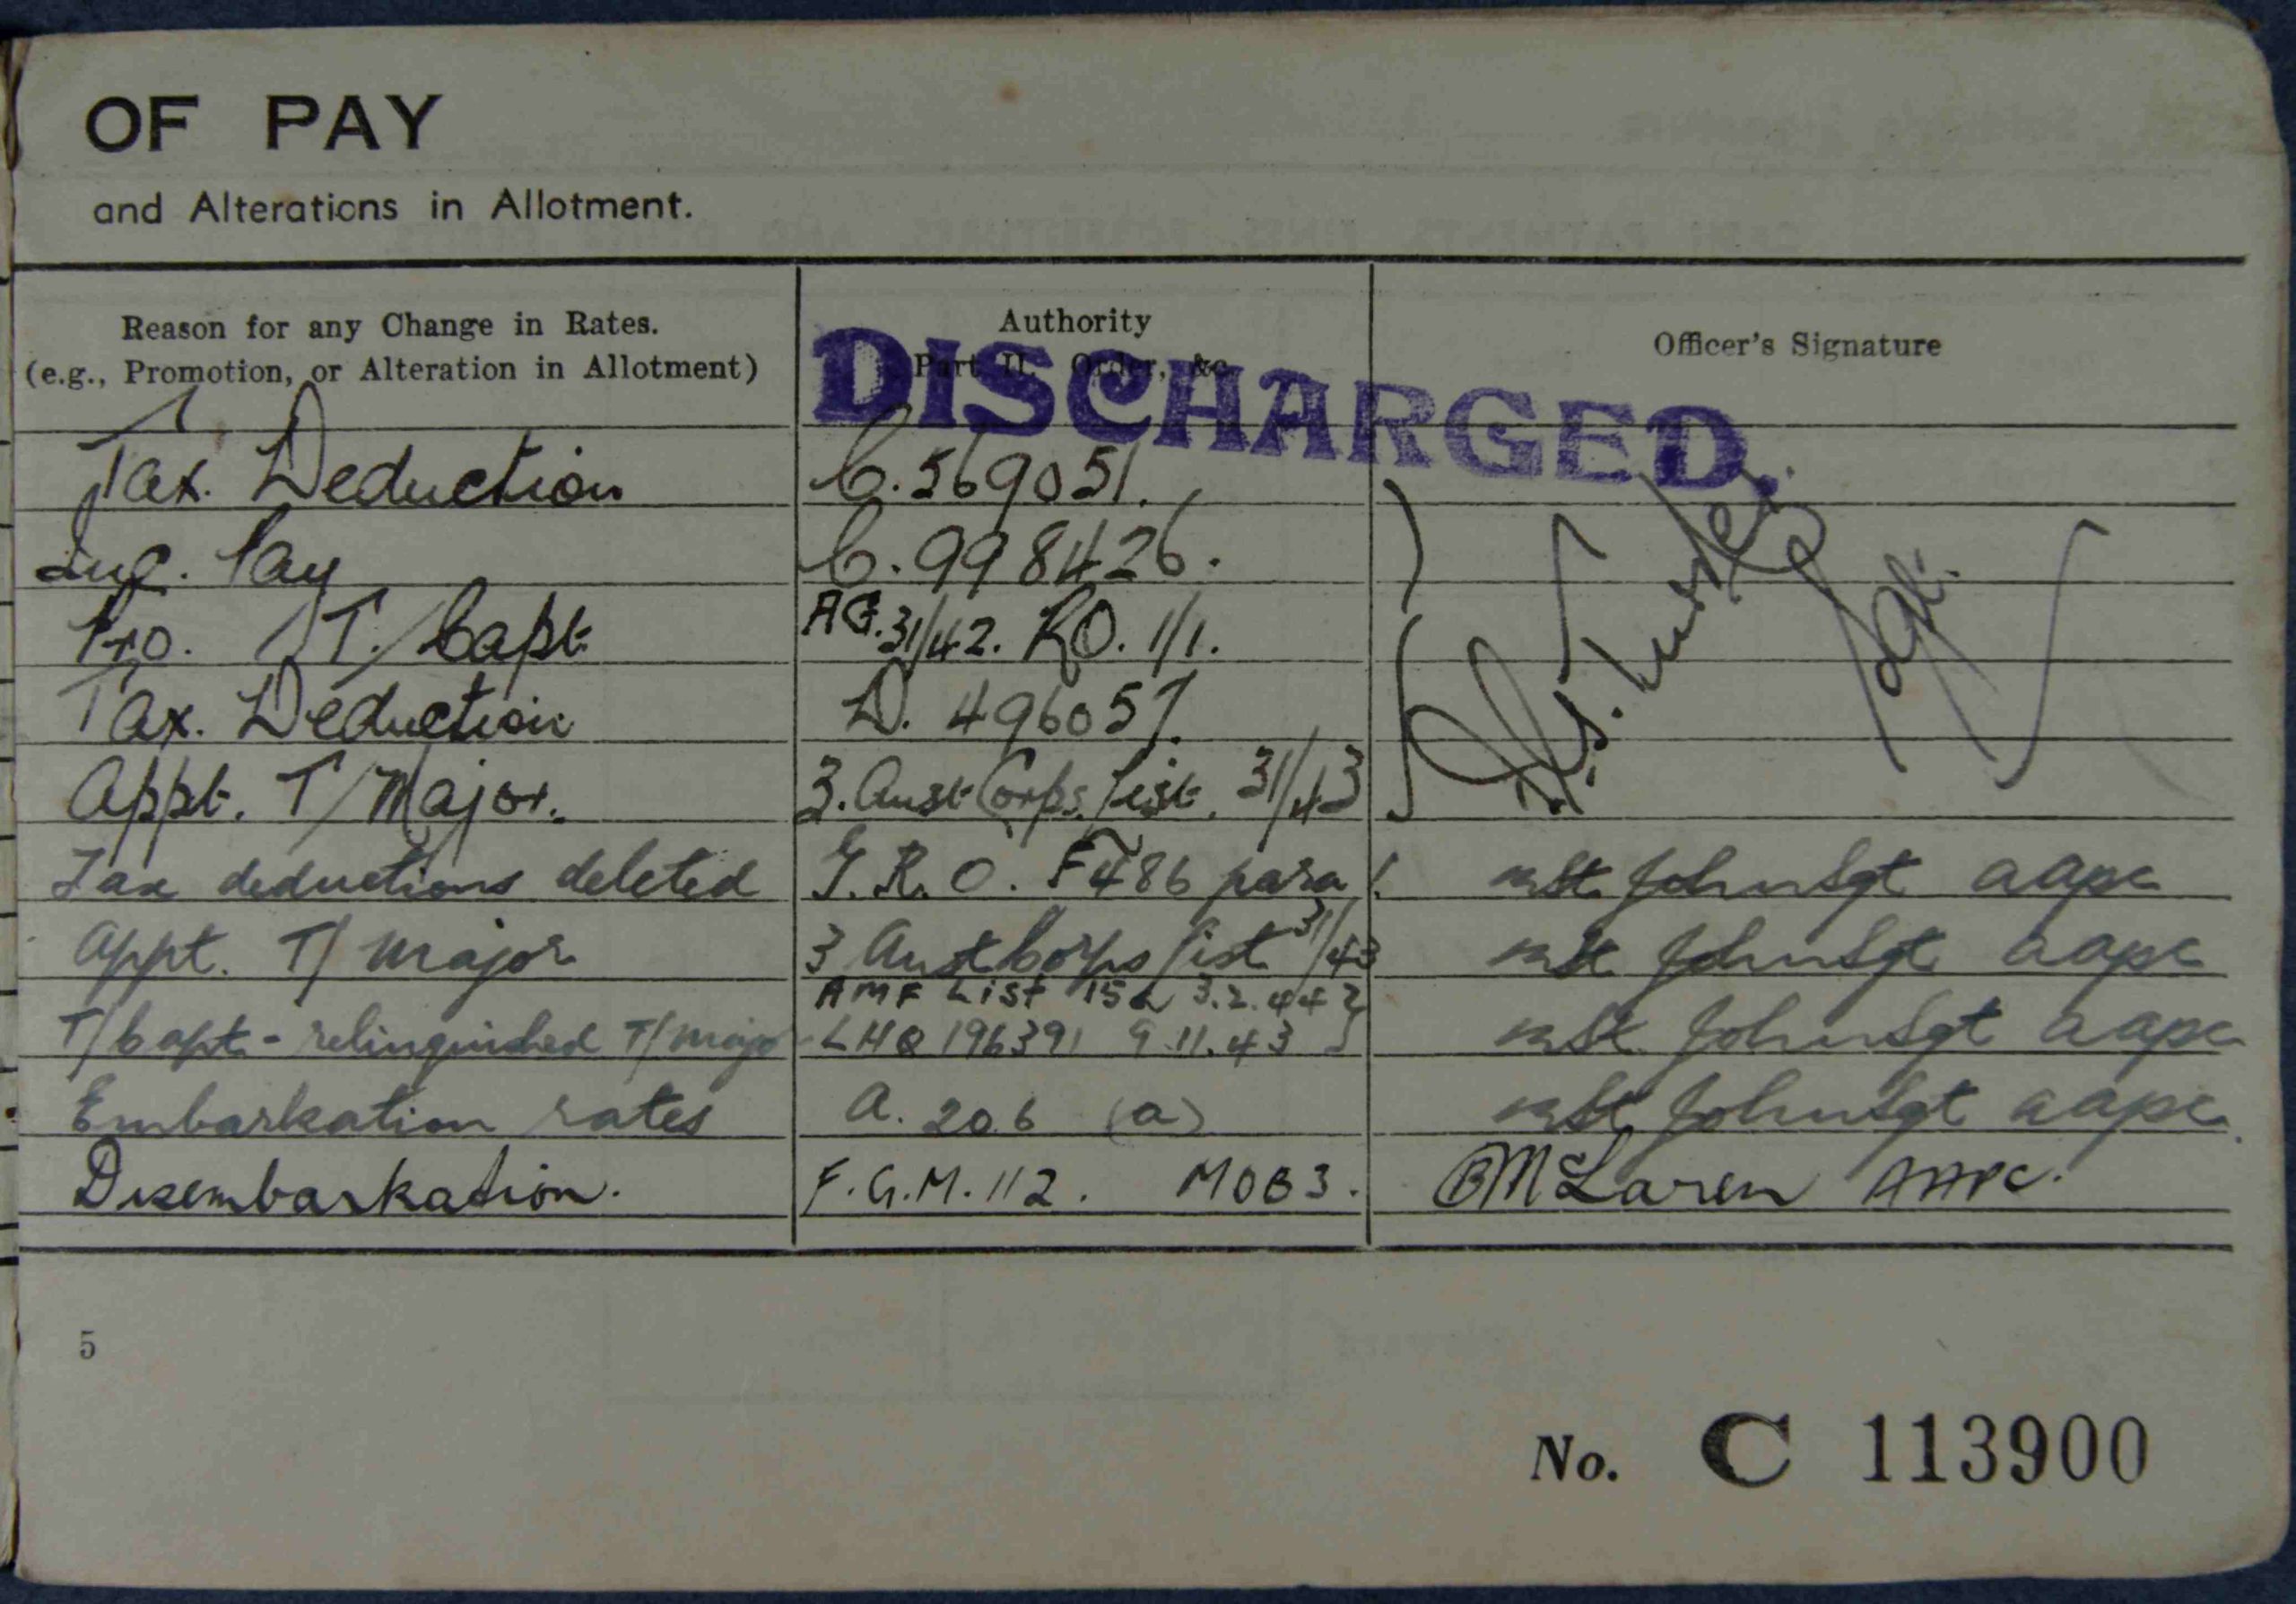 OF PAY
and Alterations in Allotment.
Reason for any Change in Rates. Authority Officer's Signature
(e.g., Promotion, or Alteration in Allotment) Part II. Order, &c.
DISCHARGED.
Tax. Deduction C.569051.
Pay C.998426.
Pro. T/Capt AG.31/42. RO. 1/1.
Tax. Deduction D. 496057.
Appt. T/Major. 3. Aust Corps. List. 31/43
Sgt.
Tax deductions deleted G.R.O. F486 para 1. St John Sgt aapc
Appt. T/Major 3 Aust Corps list 31/43 St John Sgt aapc
AMF List 152 3.2.44 }
T/Capt - relinquished T/Major LHQ 196391 9.11.43 } St John Sgt aapc
Embarkation rates A. 206 (a) St John Sgt aapc.
Disembarkation. F.G.M. 112. MOB3. BMcLaren AAPC.
5
No. C 113900